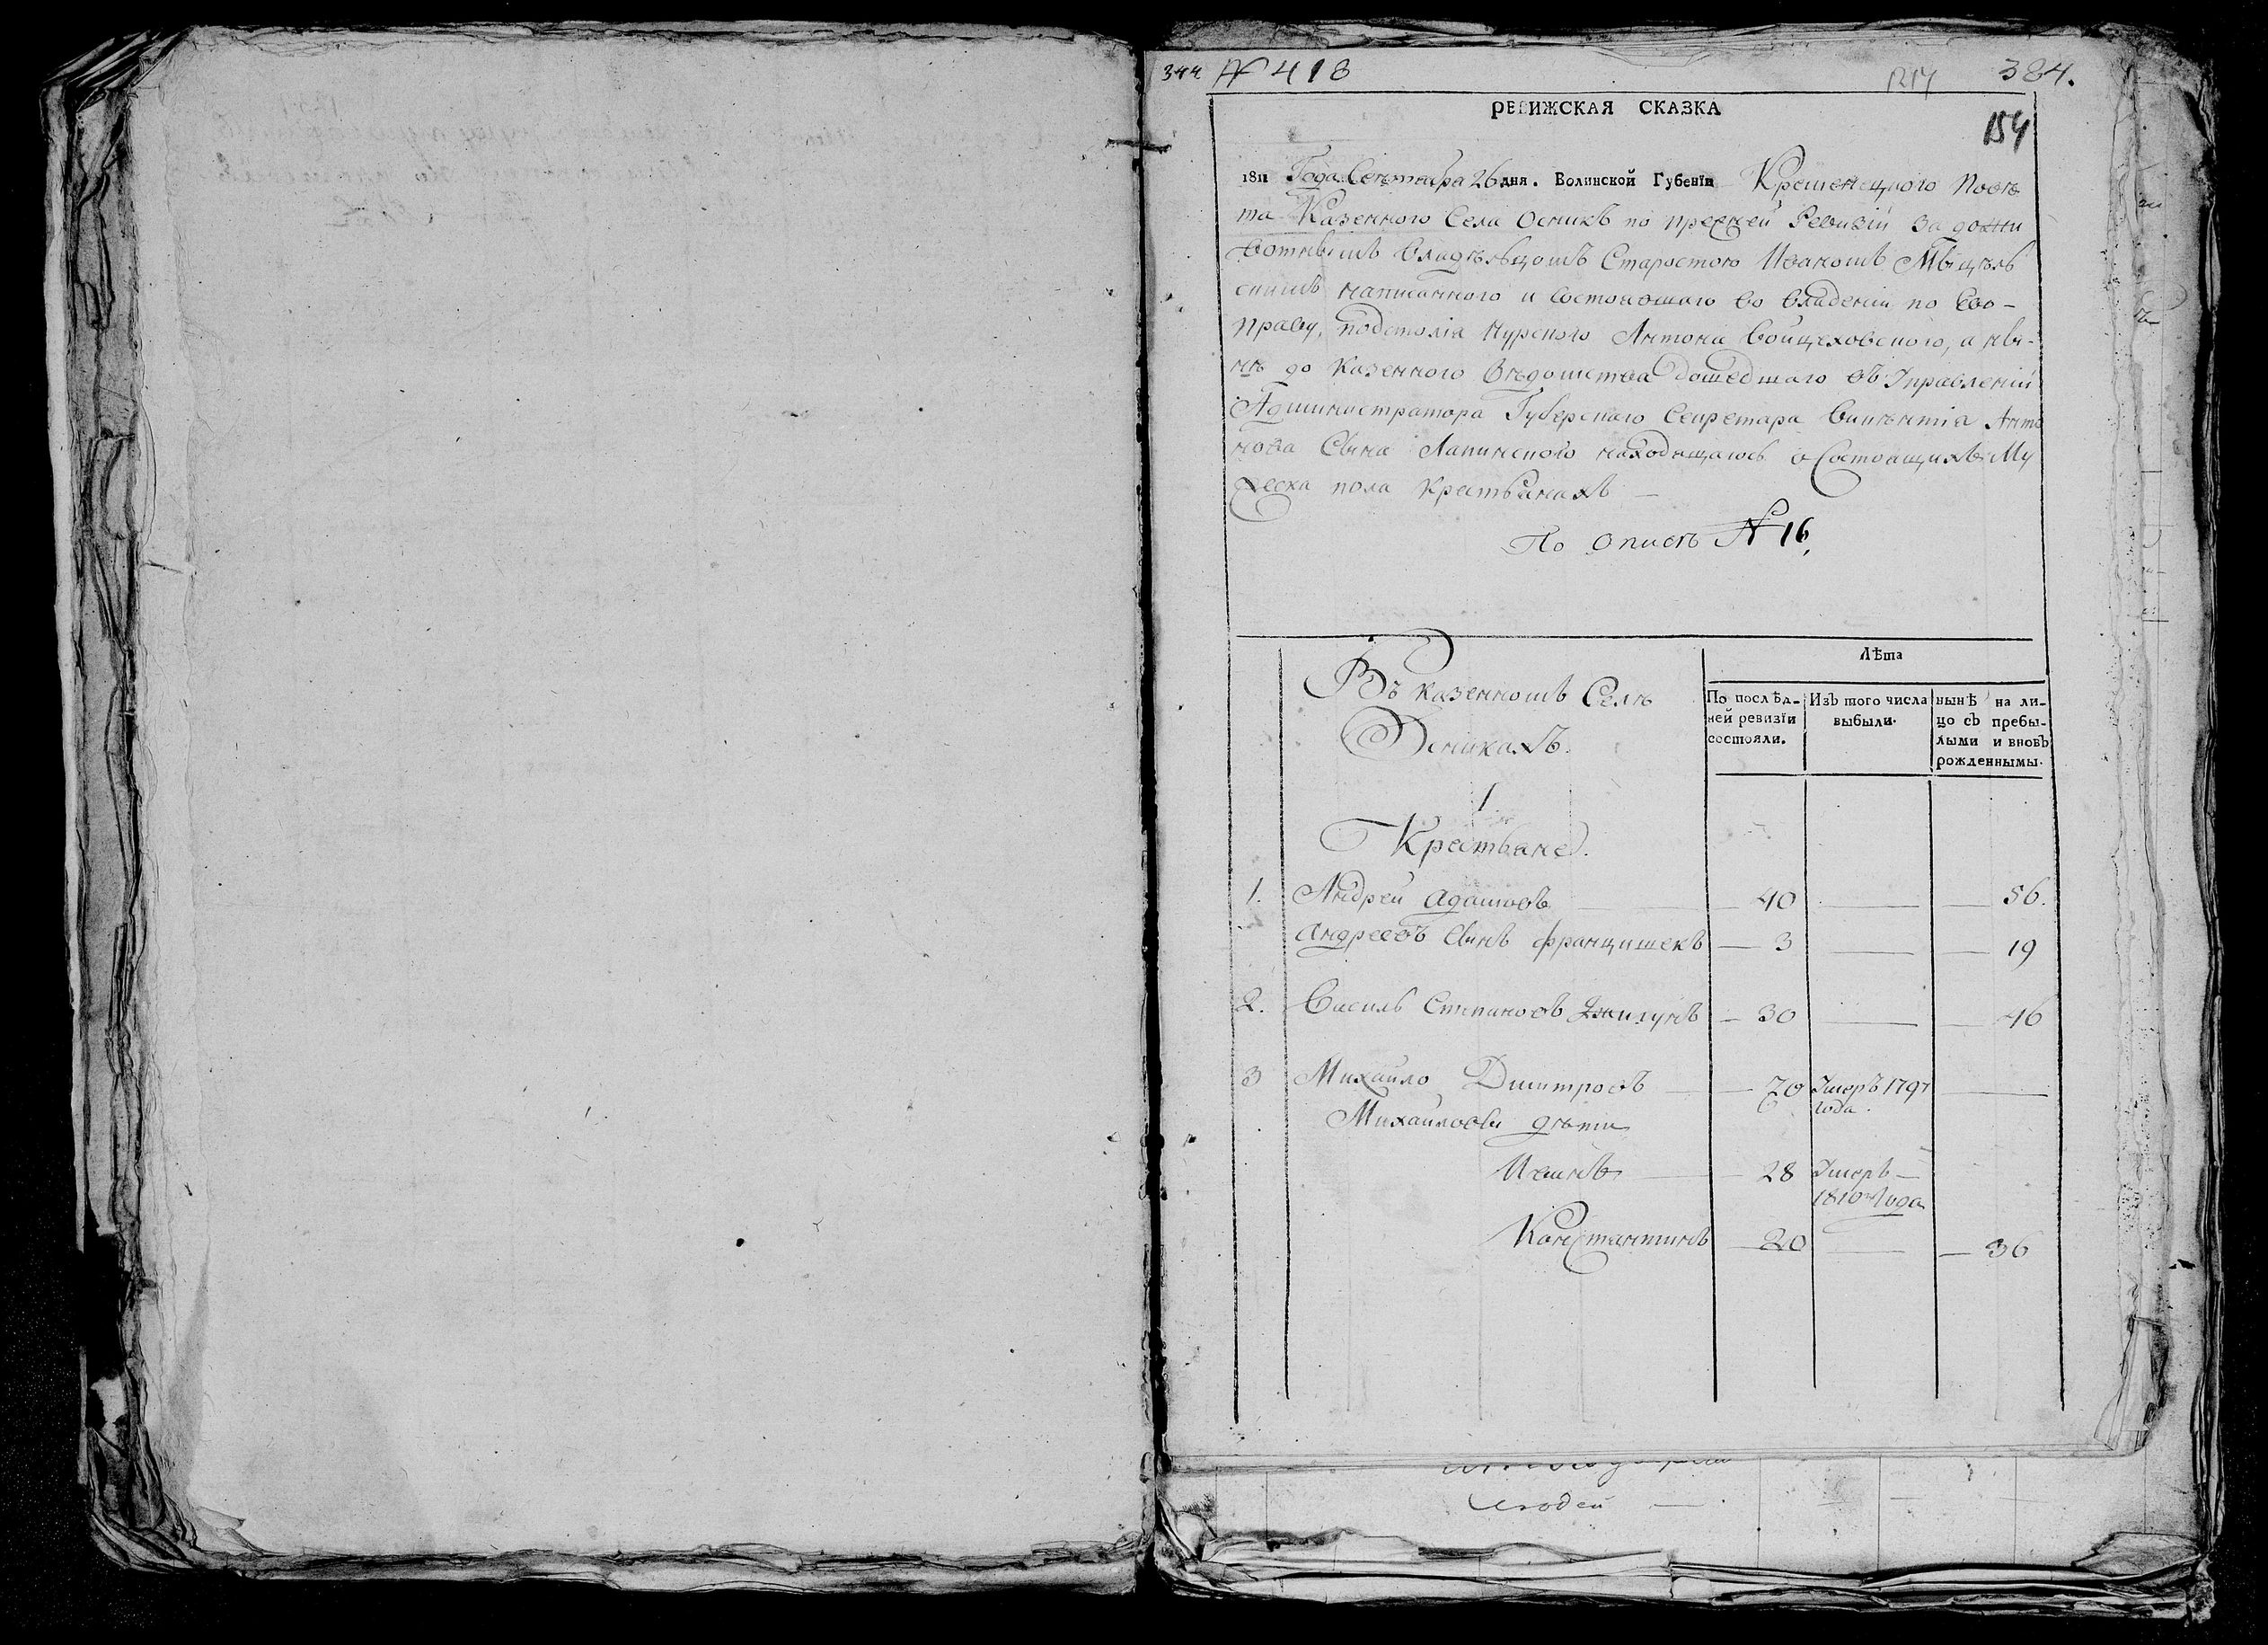 344 № 418 384.
РЕВИЖСКАЯ СКАЗКА
154
1811 Года Сентября 26 дня. Волинской Губенїи Кременецкого Повѣ
та Казенного Села Осникъ по прежней Ревизіи за дожи
вотнымъ владѣльцомъ Старостою Иваномъ
написанного и состоявшаго во владеніи по Ево-
праву, подстолія Нурского Антона Войцеховского, а ны-
нѣ до Казенного Вѣдомства дошедшаго въ Управленіи
Администратора Губерского Секретара Викентія Анто
нова Сына Лапинского находящагось о Состоящихъ Му
жеска пола крестьянахъ —
По описѣ № 16.
Въ казенномъ Селѣ
Осникахъ.
Лѣта
По послѣд-
ней ревизїи
состояли.
Изъ того числа
выбыли.
нынѣ на ли-
цо съ пребы-
лыми и вновь
рожденнымы.
1
Крестьяне.
1. Андрей Адамовъ — 40 — 56.
Андреевъ Сынъ Францишекъ — 3 — 19
2. Василь Степановъ — 30 — 46
3 Михайло Дмитровъ — 70 Умеръ 1797 —
года.
Михайловы дѣти
Иванъ — 28 Умеръ —
1810го года
Константинъ — 20 — 36
людей —